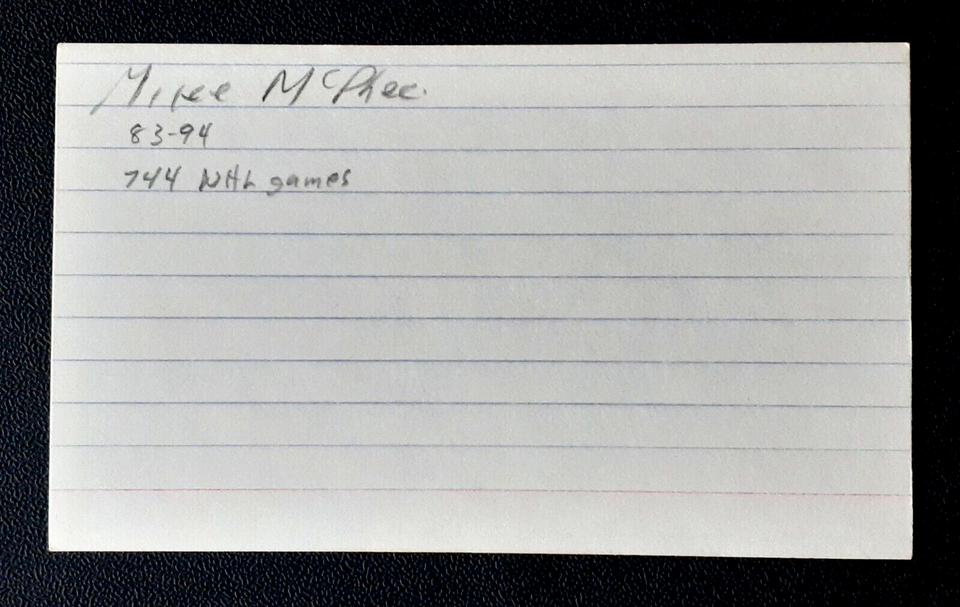 Mike McPhee
83-94
744 NHL games